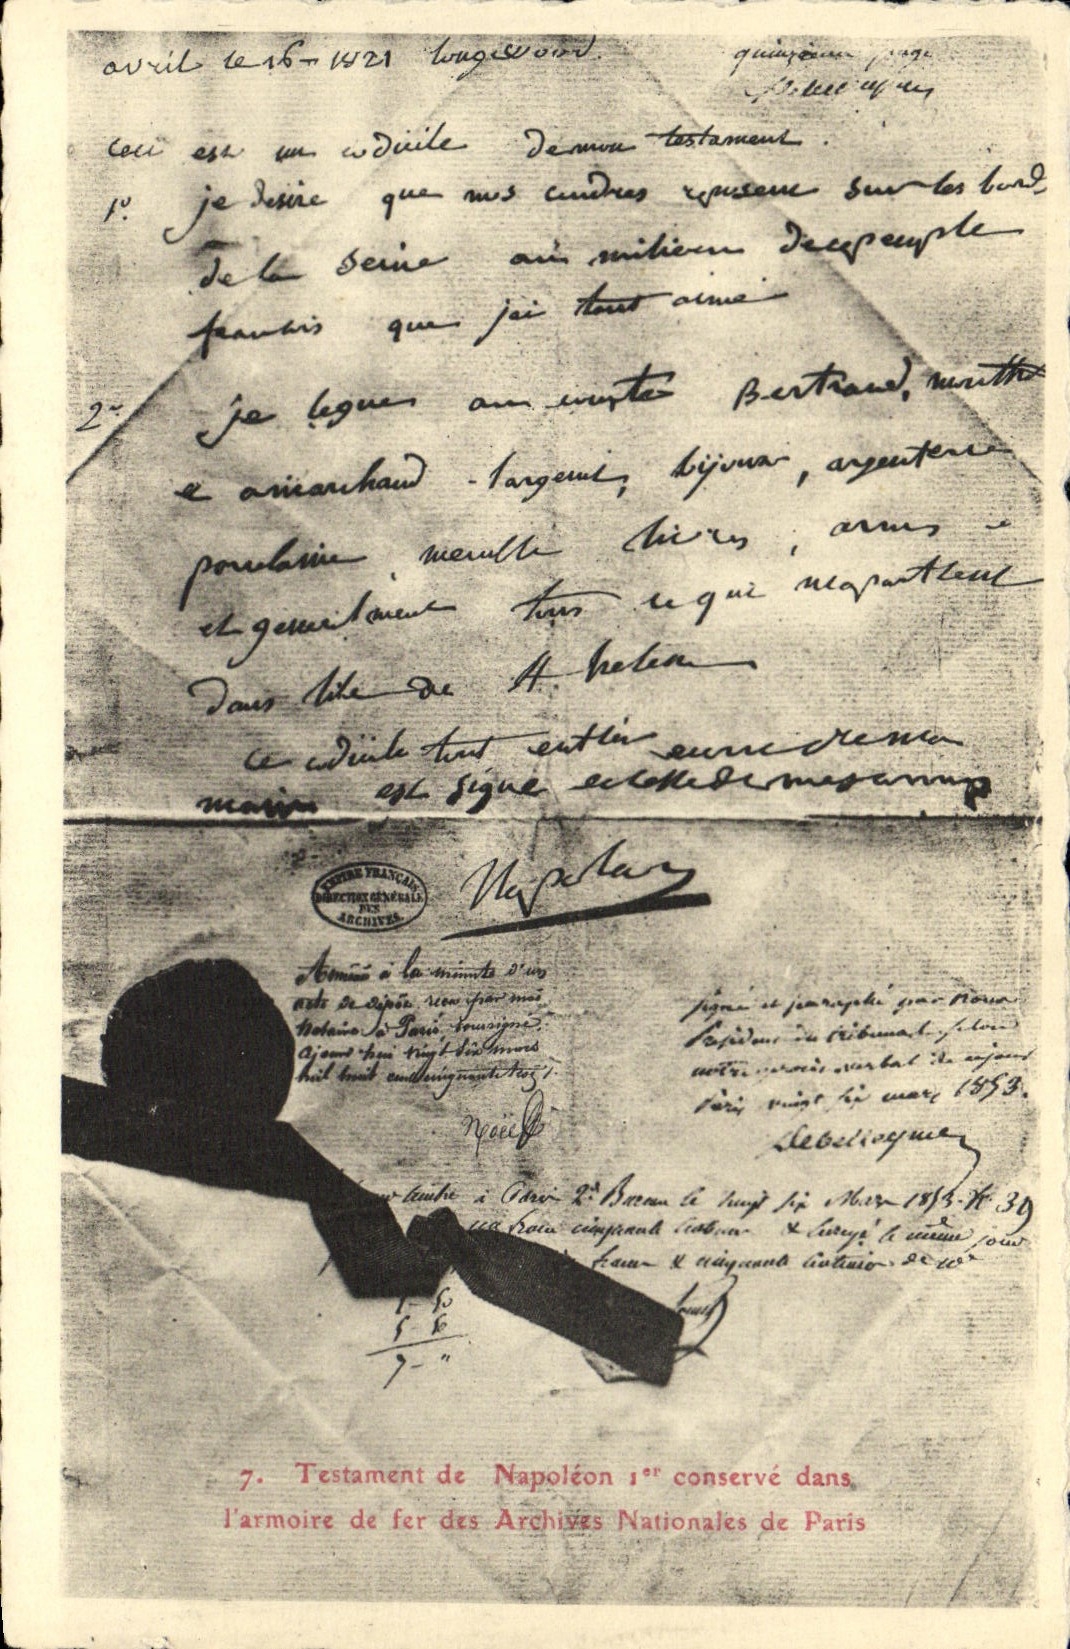 avril le 16 - 1821 longwood.
quinzieme page
Ceci est un codicile de mon testament.
1º je desire que mes cendres reposent sur les bords
de la seine au milieu de ce peuple
francais que jai tant aimé
2º je legue au comte Bertrand, montholon
et a marchand largent, bijoux, argenterie
porcelaine, meuble livres, armes
et generalment tous ce qui mapartient
dans lile de St helene
ce codicile tout entier ecrit de ma
main est signé et scellé de mes armes
Napoleon
EMPIRE FRANÇAIS
DIRECTION GÉNÉRALE
DES
ARCHIVES
Annexé à la minute d'un
acte de dépôt reçu par moi
Notaire à Paris soussigné
aujourd'hui vingt six mars
mil huit cent cinquante trois /.
Noël
Signé et paraphé par nous
Président du tribunal selon
notre procès verbal de ce jour
Paris vingt six mars 1853.
Debelleyme
à Paris 2d Bureau le vingt six Mars 1853. fº 39
cinquante centimes & le même jour
francs & cinquante centimes de 10e
1 - 50
5 - 50
7 - "
7. Testament de Napoléon 1er conservé dans
l'armoire de fer des Archives Nationales de Paris